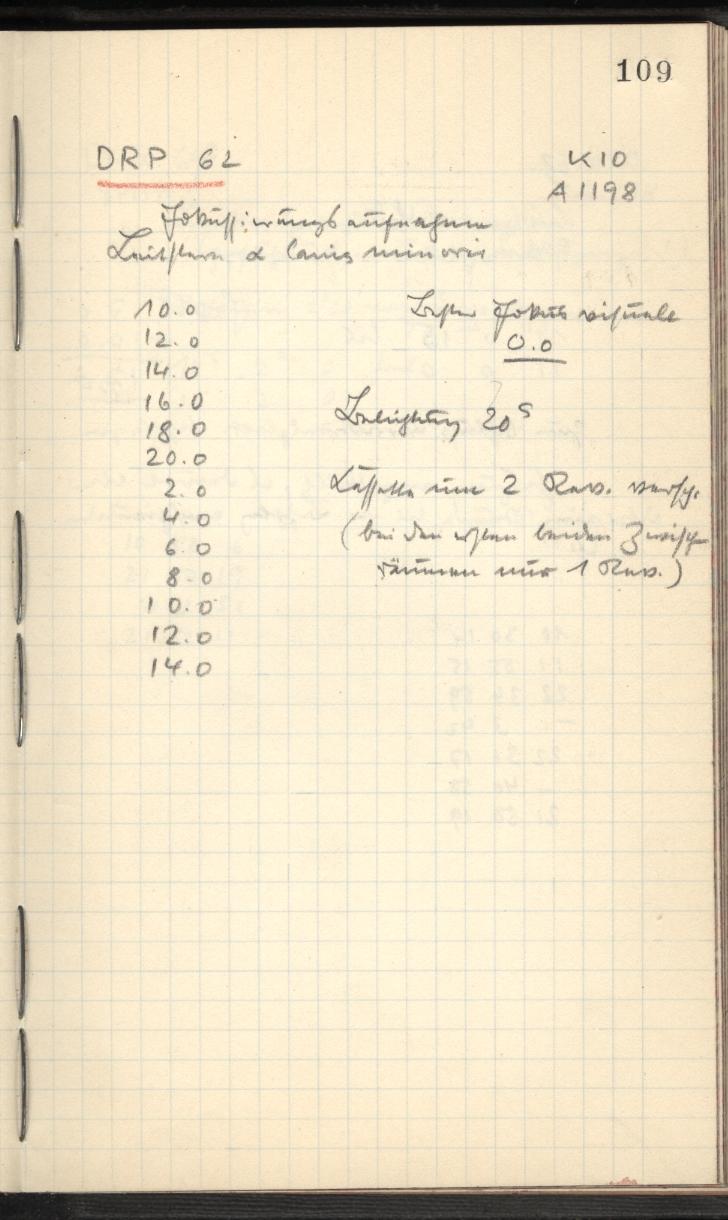 109
DRP 62
K10
A 1198
Fokussierungsaufnahme
Leitstern α Canis minoris
10.0
12.0
14.0
16.0
18.0
20.0
2.0
4.0
6.0
8.0
10.0
12.0
14.0
Bester Fokus visuell
0.0
Belichtung 20s
Kassette um 2 Rev. versch.
(bei den ersten beiden Zwisch
räumen nur 1 Rev.)